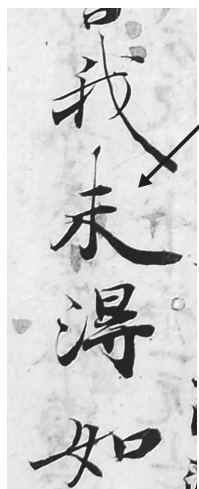 我未得如